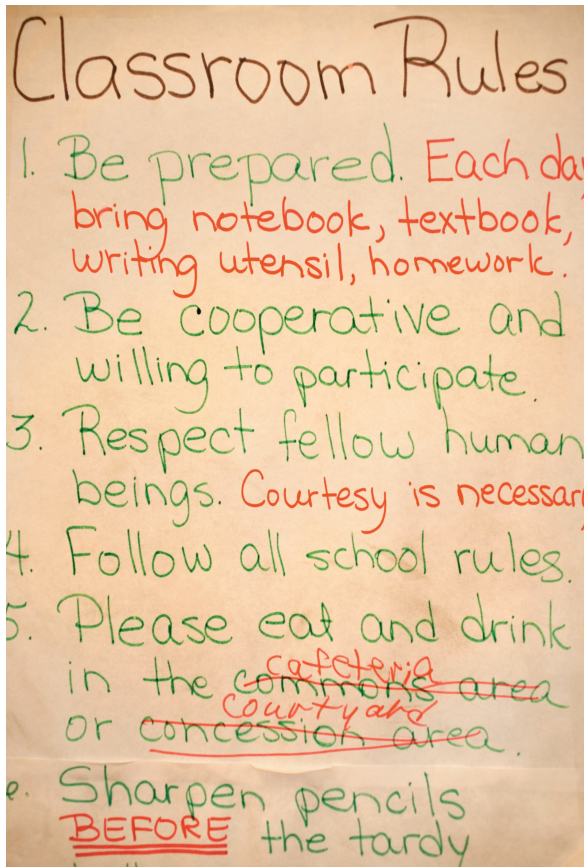 Classroom Rules
1. Be prepared. Each day
bring notebook, textbook,
writing utensil, homework.
2. Be cooperative and
willing to participate.
3. Respect fellow human
beings. Courtesy is necessary
4. Follow all school rules.
5. Please eat and drink
cafeteria
in the commons area
courtyard
or concession area.
Sharpen pencils
BEFORE the tardy